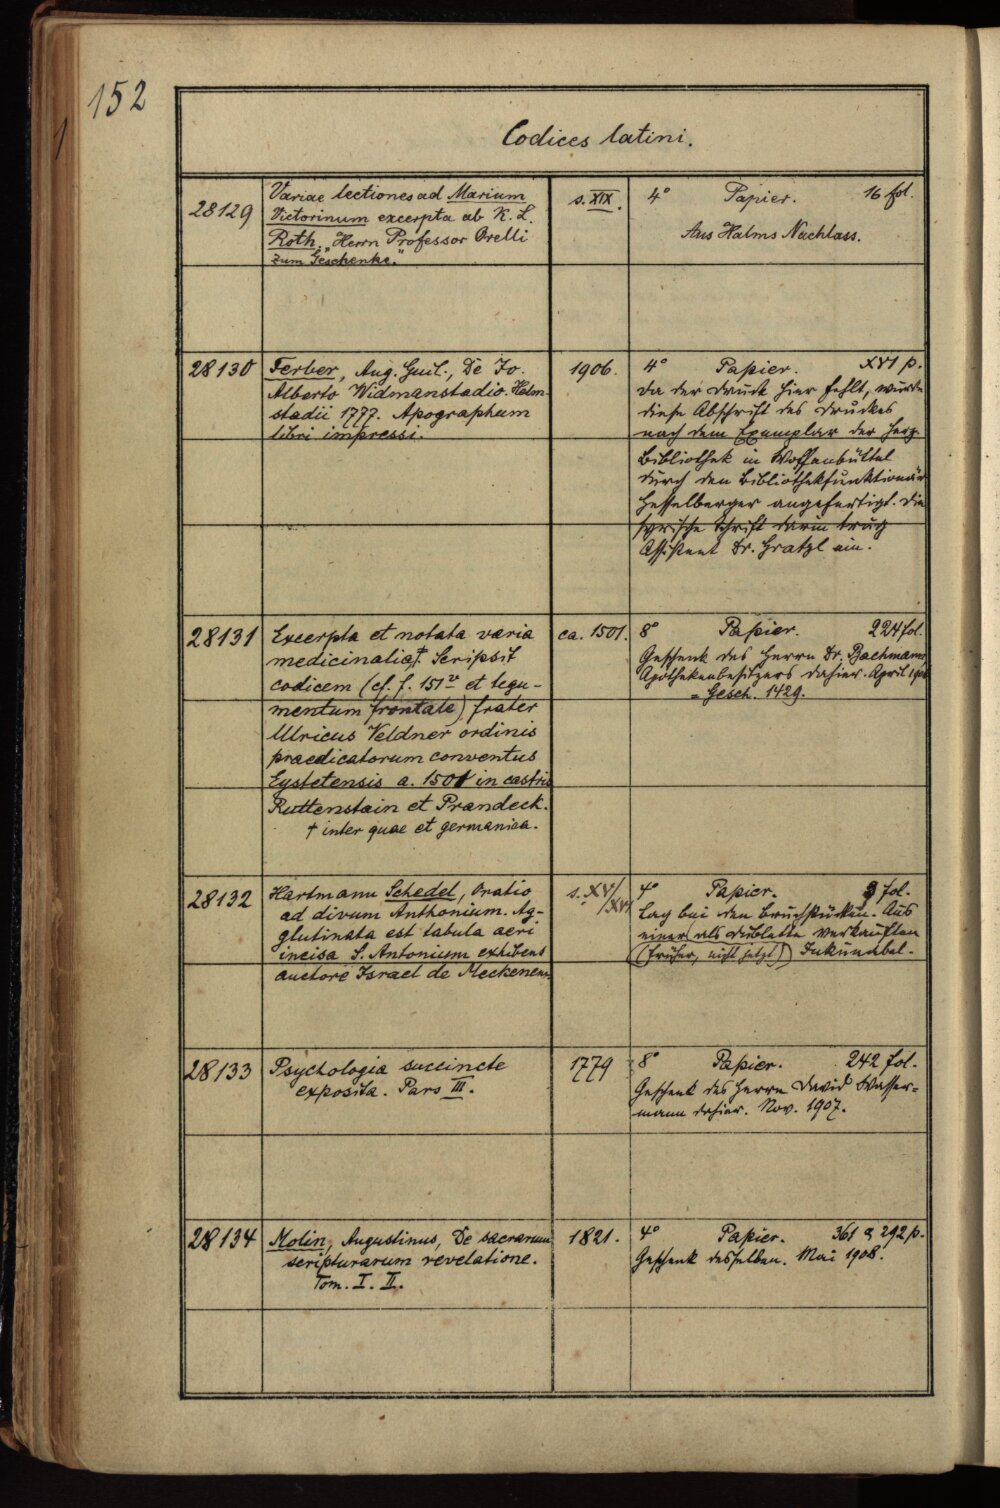 152
Codices latini.
28129
Variae lectiones ad Marium
Victorinum excerpta ab K. L.
Roth. „Herrn Professor Orelli
zum Geschenke."
s. XIX.
4° Papier. 16 fol.
Aus Halms Nachlass.
28130
Ferber, Aug. Guil., De Jo.
Alberto Widmanstadio. Helm-
stadii 1777. Apographum
libri impressi.
1906.
4° Papier. XVI p.
Da der Druck hier fehlt, wurde
diese Abschrift des Druckes
nach dem Exemplar der Herz.
Bibliothek in Wolfenbüttel
durch den Bibliothekfunktionär
Hesselberger angefertigt. Die
syrische Schrift darin trug
Assistent Dr. Gratzl ein.
28131
Excerpta et notata varia
medicinalia†. Scripsit
codicem (cf. f. 151v et tegu-
mentum frontale) frater
Ulricus Veldner ordinis
praedicatorum conventus
Eystetensis a. 1501 in castris
Ruttenstain et Prandeck.
† inter quae et germanica.
ca. 1501.
8° Papier. 224 fol.
Geschenk des Herrn Dr. Bachmann,
Apothekenbesitzers dahier. April
= Gesch. 1429.
28132
Hartmann Schedel, Oratio
ad divum Anthonium. Ag-
glutinata est tabula aeri
incisa S. Antonium exhibens
auctore Israel de Meckenem
s. XV/
/XVI
4° Papier. 3 fol.
Lag bei den Bruchstücken. Aus
einer (als Dublette verkauften
(früher, nicht jetzt)) Inkunabel.
28133
Psychologia succincte
exposita. Pars III.
1779
8° Papier. 242 fol.
Geschenk des Herrn David Wasser-
mann dahier. Nov. 1907.
28134
Molin, Augustinus, De sacrarum
scripturarum revelatione.
Tom. I. II.
1821.
4° Papier. 361 & 292 p.
Geschenk desselben. Mai 1908.